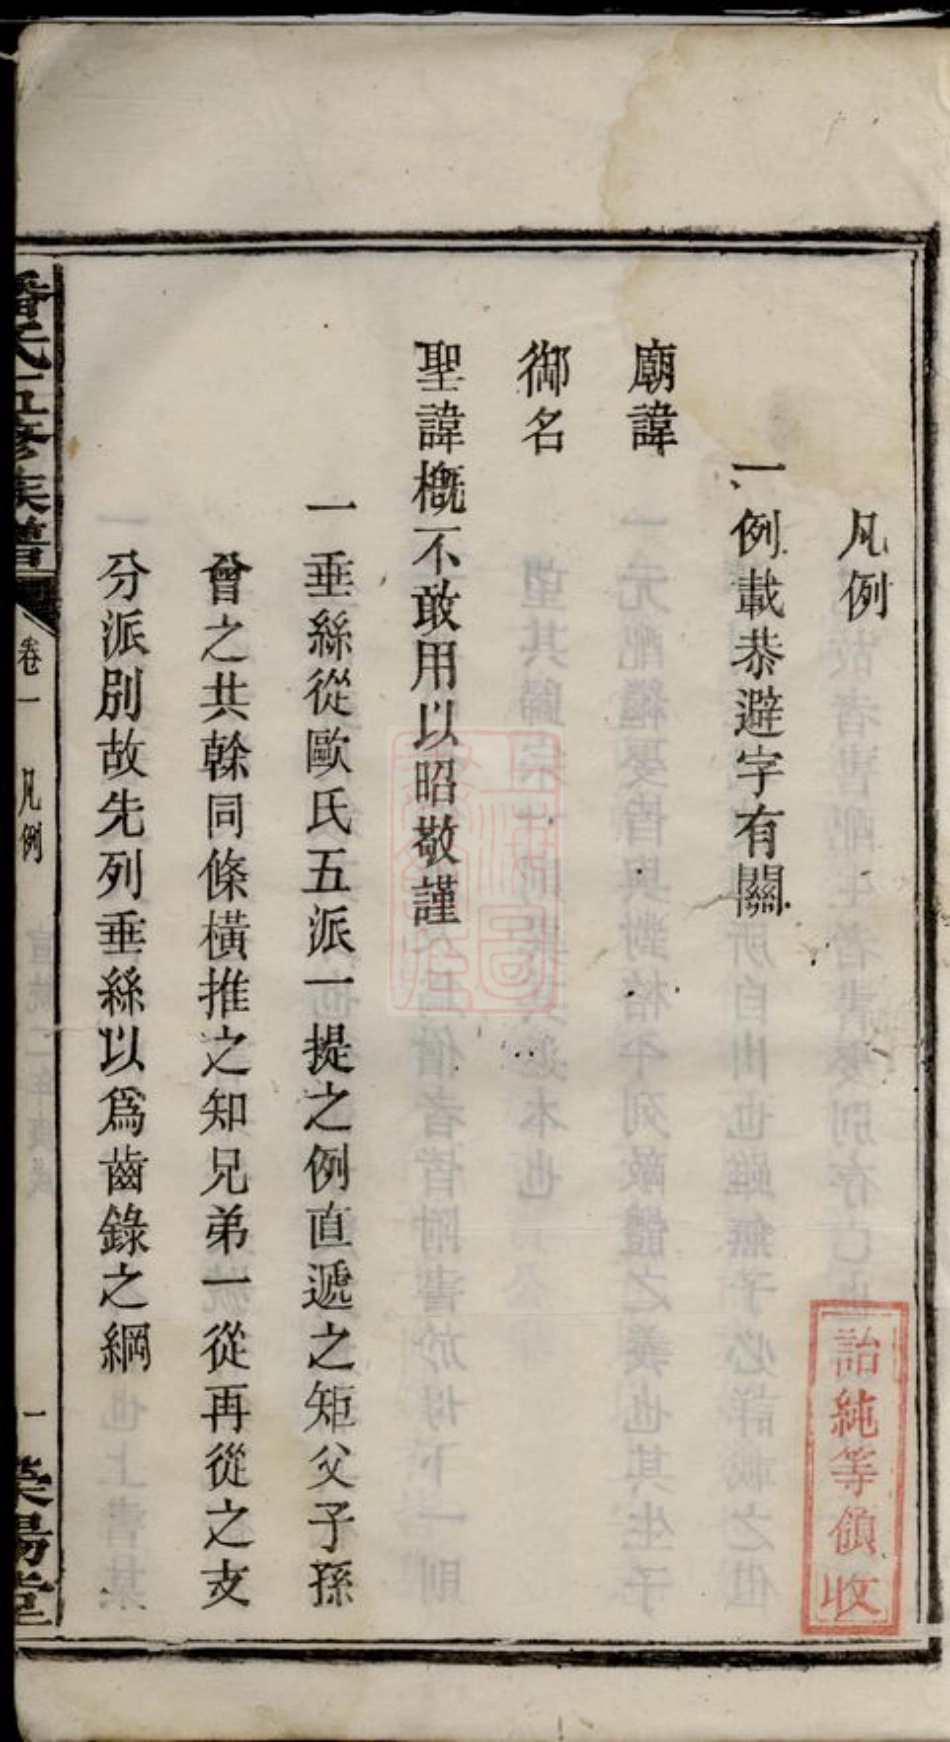 凡例
一例載恭避字有關
廟諱
御名
聖諱概不敢用以昭敬謹
一垂絲從歐氏五派一提之例直遞之矩父子孫
曾之共榦同條橫推之知兄弟一從再從之支
分派別故先列垂絲以爲齒錄之綱
潘氏五修族譜
卷一
凡例
一
滎陽堂
詒純等領收